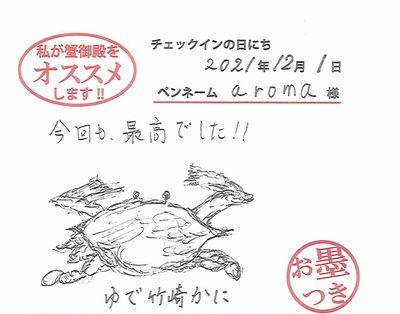 私が蟹御殿を
オススメ
します!!
チェックインの日にち
2021年12月1日
ペンネーム aroma 様
今回も、最高でした!!
ゆで竹崎かに
お墨
つき